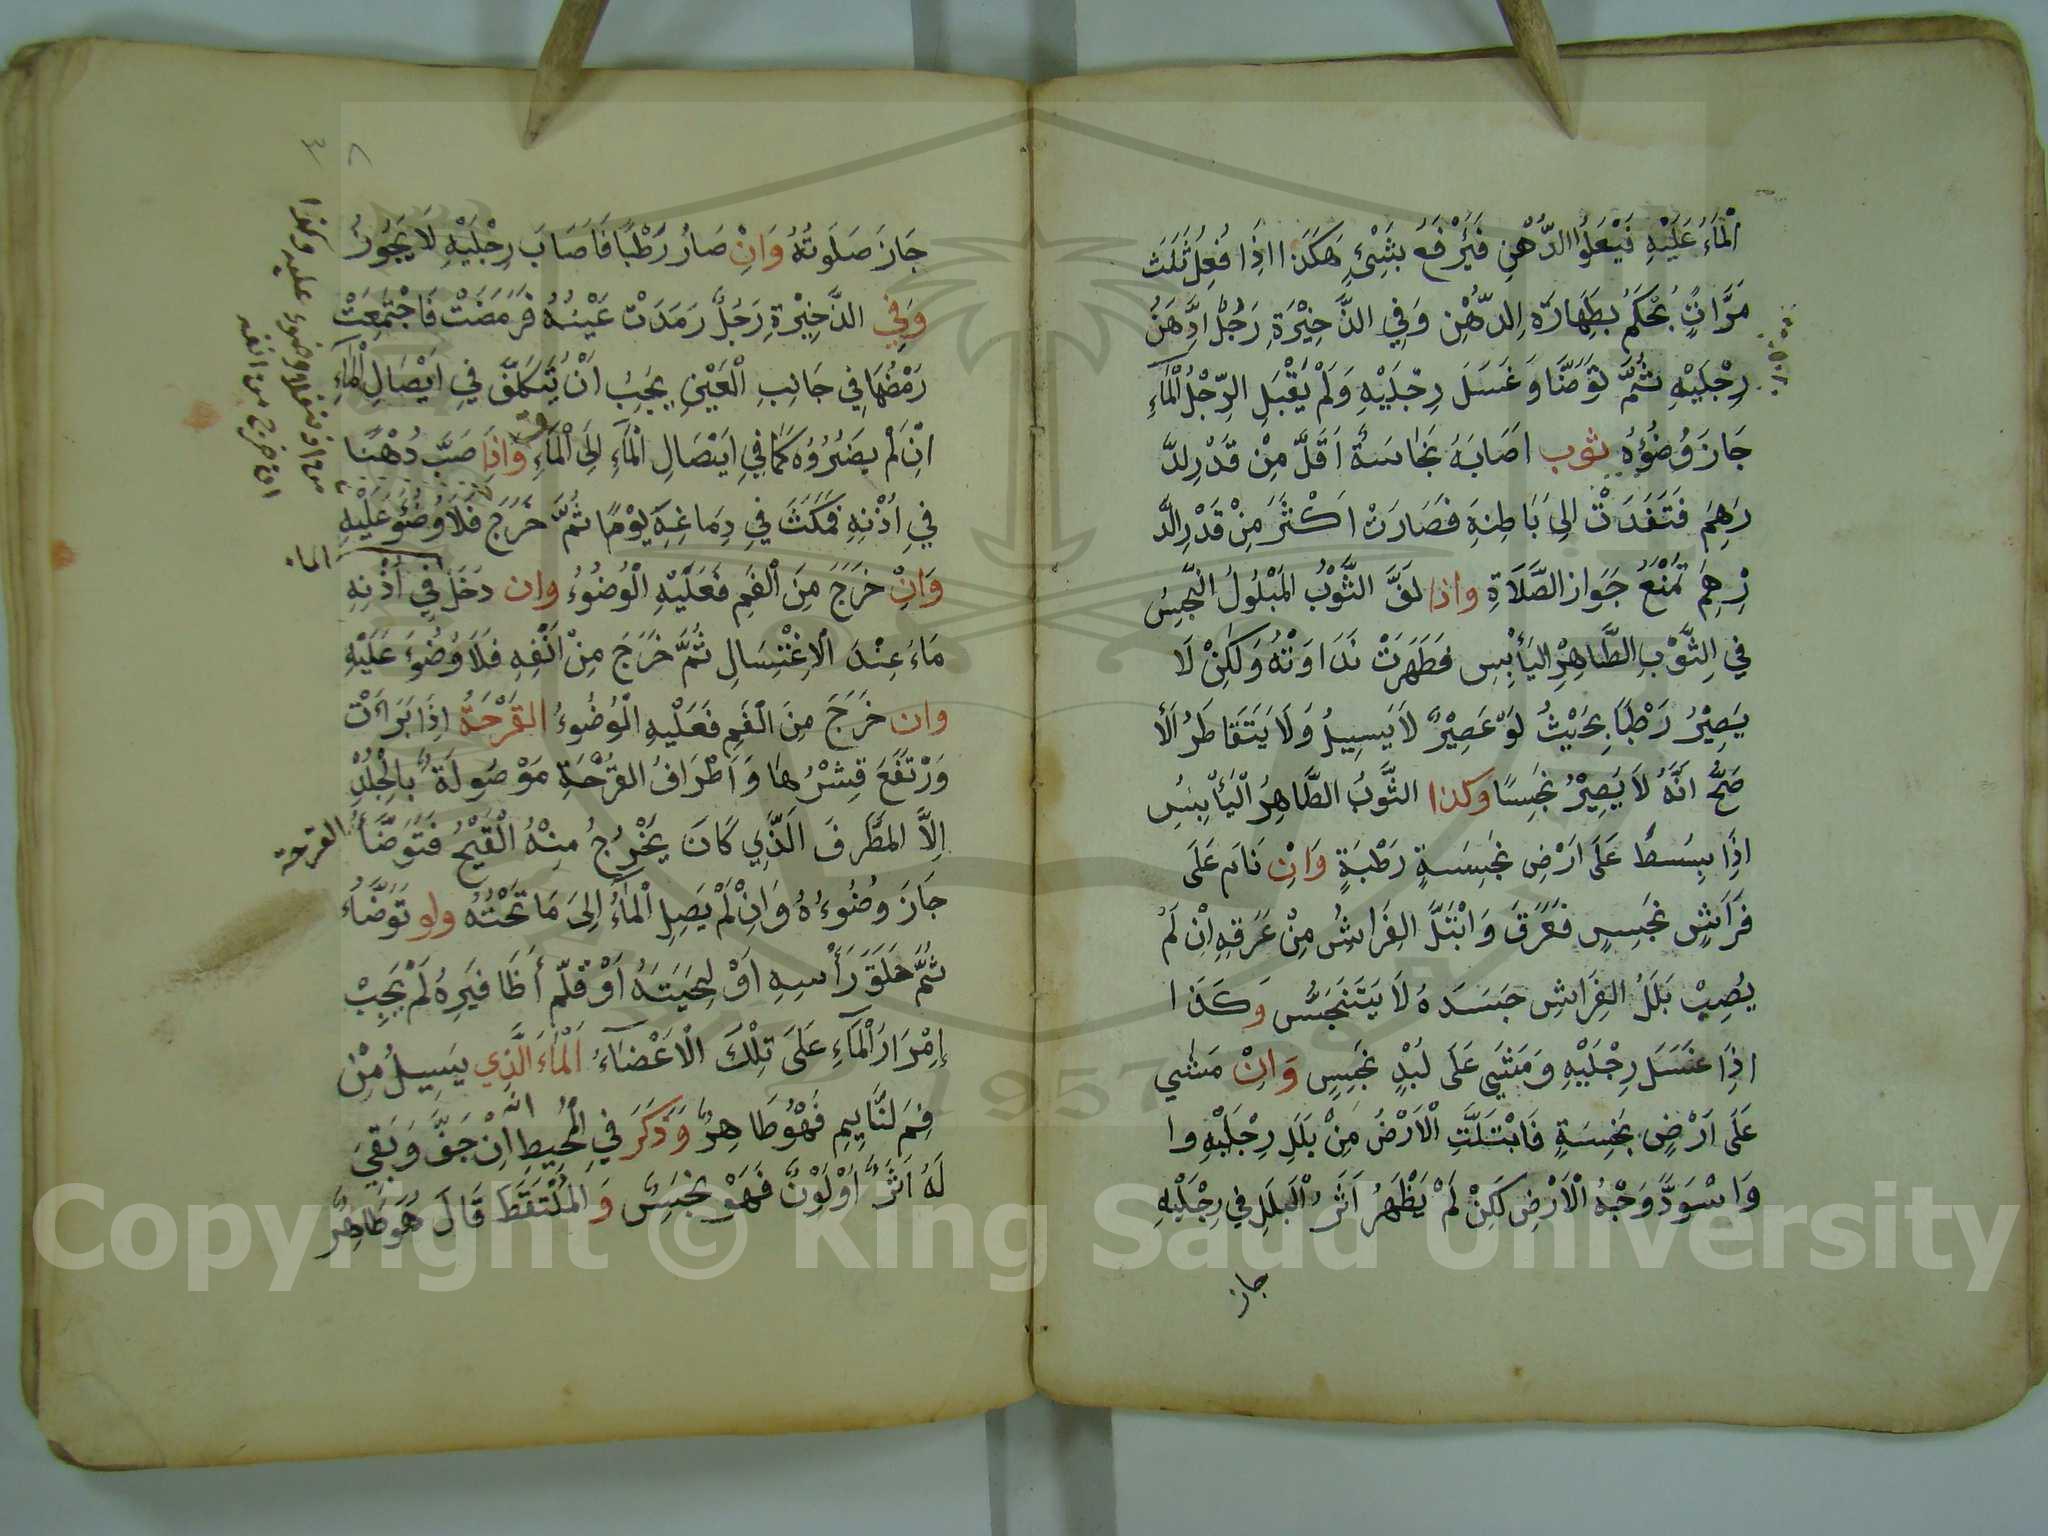 الْمَاءُ عَلَيْهِ فَيَعْلُوا الدُّهْنِ فَيُرْفَعُ بِشَيْءٍ هَكَذَا اِذَا فُعِلَ ثَلَثَ
مَرَّاتٍ يُحْكَمُ بِطَهَارَةِ الدُّهْنِ وَفِي الذَّخِيْرَةِ رَجُلٌ ادَّهَنَ
رِجْلَيْهِ ثُمَّ تَوَضَّا وَغَسَلَ رِجْلَيْهِ وَلَمْ يَقْبَلِ الرِّجْلُ الْمَآءِ
جَازَ وُضُوْءُهُ ثوب اَصَابَهُ نَجَاسَةٌ اَقَلَّ مِنْ قَدْرِ لدَّ
رهِمِ فَتَفَدَتْ اِلىَ بَاطِنِهِ فَصَارَتْ اَكْثَرَ مِنْ قَدْرِ الدَّ
رْهِمِ تَمْنَعُ جَوَاز الصَّلَاةِ واذا لَفَّ الثَّوْبُ المَبْلُولُ النَّجِسُ
فِي الثَّوْبِ الطَّاهِرِ اليَأْبِسِ فظَهَرَتْ نَدَاوَتُهُ وَلَكِنْ لَا
يَصِيْرُ رَطْبًا بِحَيْثُ لَوْ عَصِيْرٌ لَا يَسِيلُ وَلَا يَتَقَاطَرُ اَلْأ
صَحُّ اَنَّهُ لَا يَصِيْرُ نَجِسًا وَكذا الثَّوبُ الطَّاهِرُ الْيَأْبِسُ
اِذَا بِسَطَ عَلَى اَرْضٍ نَجِسَةٍ رَطْبَةٍ وَاِنْ نَام عَلَى
فَرَاشٍ نَجِسٍ فَعَرَقَ وَابْتَلَّ الفِرَاشُ مِنْ عَرَقِهِ اِنْ لَمْ
يُصِبْ بَلَلُ الفِرَاشِ جَسَدَهُ لَا يَتَنَجَّسُ وَكَذَا
اذِا غَسَلَ رِجْلَيْهِ وَمَشَي عَلَى لُبْدٍ نَجِسٍ وَاِنْ مَشَي
عَلَى اَرْضٍ نَجِسَةٍ فَابْتَلَّتِ الْاَرْضُ مِنْ بَلَلِ رِجْلَيْهِ وا
وَاسْوَدَّ وَجْهُ الْاَرْضِ لَكِنْ لَمْ يَظْهَرُ اَثَرُ الْبَلَلِ فِي رِجْلَيْهِ
جاز
٣٨
جَازَ صَلَوتُهُ وَاِنْ صَارُ رَطْبًا فَاَصَابَ رِجْلَيْهِ لَا يَجُوزُ
وَفِي الذَّخِيْرَةِ رَجُلٌ رَمَدَتْ عَيْنُهُ فَرَمَضَتْ فَاجْتَمَعَتْ
رَمْضُهَا فِي جَانِبِ الْعَيْنِ يَجِبُ اَنْ يُتَكَلَّفَ فِي اِيْصَالِ الْمَاءِ
اِنْ لَمْ يَضُرُّوُهُ كَمَا فِي اِيْصَالِ الْمَآءِ اِلَى الْمَآءِ وَاِذَا صَبَّ دُهْنًا
فِي اُذُنِهِ فَمَكَثَ فِي دِمَاغِهِ يَوْمًا ثُمَّ خَرَجَ فَلَا وُضُوءَ عَلَيْهِ
وَاِنْ خَرَجَ مِنَ الْفَمِ فَعَلَيْهِ الْوُضُوْءُ وان دَخَلَ فِي اُذُنِهِ
مَاءٌ عِنْدَ الْاِغْتِسَالِ ثُمَّ خَرَجَ مِنْ اَنْفِهِ فَلَا وُضُوءَ عَلَيْهِ
وان خَرَجَ مِنَ الْفَمِ فَعَلَيْهِ الْوُضُوءُ القَرْحَةُ اِذَا بَرَاَتْ
وَرْتَفَعَ قِشْرُهَا وَاَطْرَافُ القَرْحَةِ مَوْصُولَةٌ بِالْجِلْدِ
اِلَّا الطَّرَفَ الَّذِي كَانَ يَخْرُجُ مِنْهُ الْقَيْحُ فَتَوَضَّأَ
جَازَ وُضُوءُهُ وَاِنْ لَمْ يَصِلِ الْمَاءُ اِلىَ مَا تَحْتَهُ ولو تَوَضَّاُ
ثُمَّ حَلَقَ رَأْسِهِ اَوْ لِحْيَتَهُ اَوْ قَلَّمَ أَظَافِيَرهُ لَمْ يَجِبْ
اِمْرَارُ الْمَآءِ عَلَى تِلْكَ الْاَعْضَآءُ اَلْمَاءُ الَّذِي يَسِيلُ مِنْ
فِمَ لنَّايِمِ فَهُوُ طَاهِرٌ وَذَكَرَ فِي الْمُحِيطِ انه اِنْ جَفَّ وَبَقِيَ
لَهُ اَثَرٌ اَوْ لَوْنٌ فَهُوَ نَجِسٌ وَ الْمُلْتَقَطَ قَالَ هُوَ طَاهِرٌ
الماء
القرحة
Copyright © King Saud University
1957